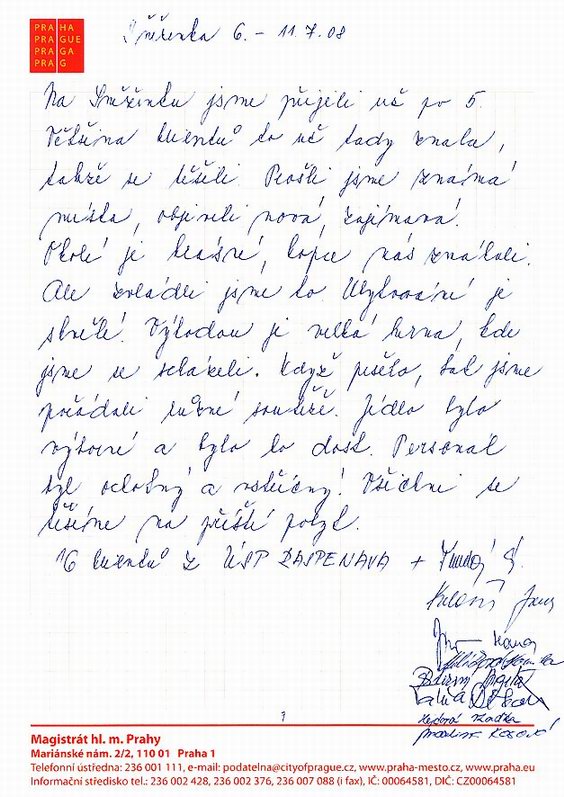 PRA HA
PRA GUE
PRA GA
PRA G
Sněženka 6. - 11.7.08
Na Sněženku jsme přijeli už po 5.
Většina klientů to už tady znala,
takže se těšili. Prošli jsme známá
místa, objevili nová, zajímavá.
Okolí je krásné, kopce nás zmáhali.
Ale zvládli jsme to. Ubytování je
skvělé. Výhodou je velká herna, kde
jsme se setkáveli. Když pršelo, tak jsme
pořádali různé soutěže. Jídlo bylo
výborné a bylo to dost. Personál
byl ochotný a vstřícný! Všichni se
těšíme na příští pobyt.
16 klientů z ÚSP RASPENAVA +
Magistrát hl. m. Prahy
Mariánské nám. 2/2, 110 01 Praha 1
Telefonní ústředna: 236 001 111, e-mail: podatelna@cityofprague.cz, www.praha-mesto.cz, www.praha.eu
Informační středisko tel.: 236 002 428, 236 002 376, 236 007 088 (i fax), IČ: 00064581, DIČ: CZ00064581